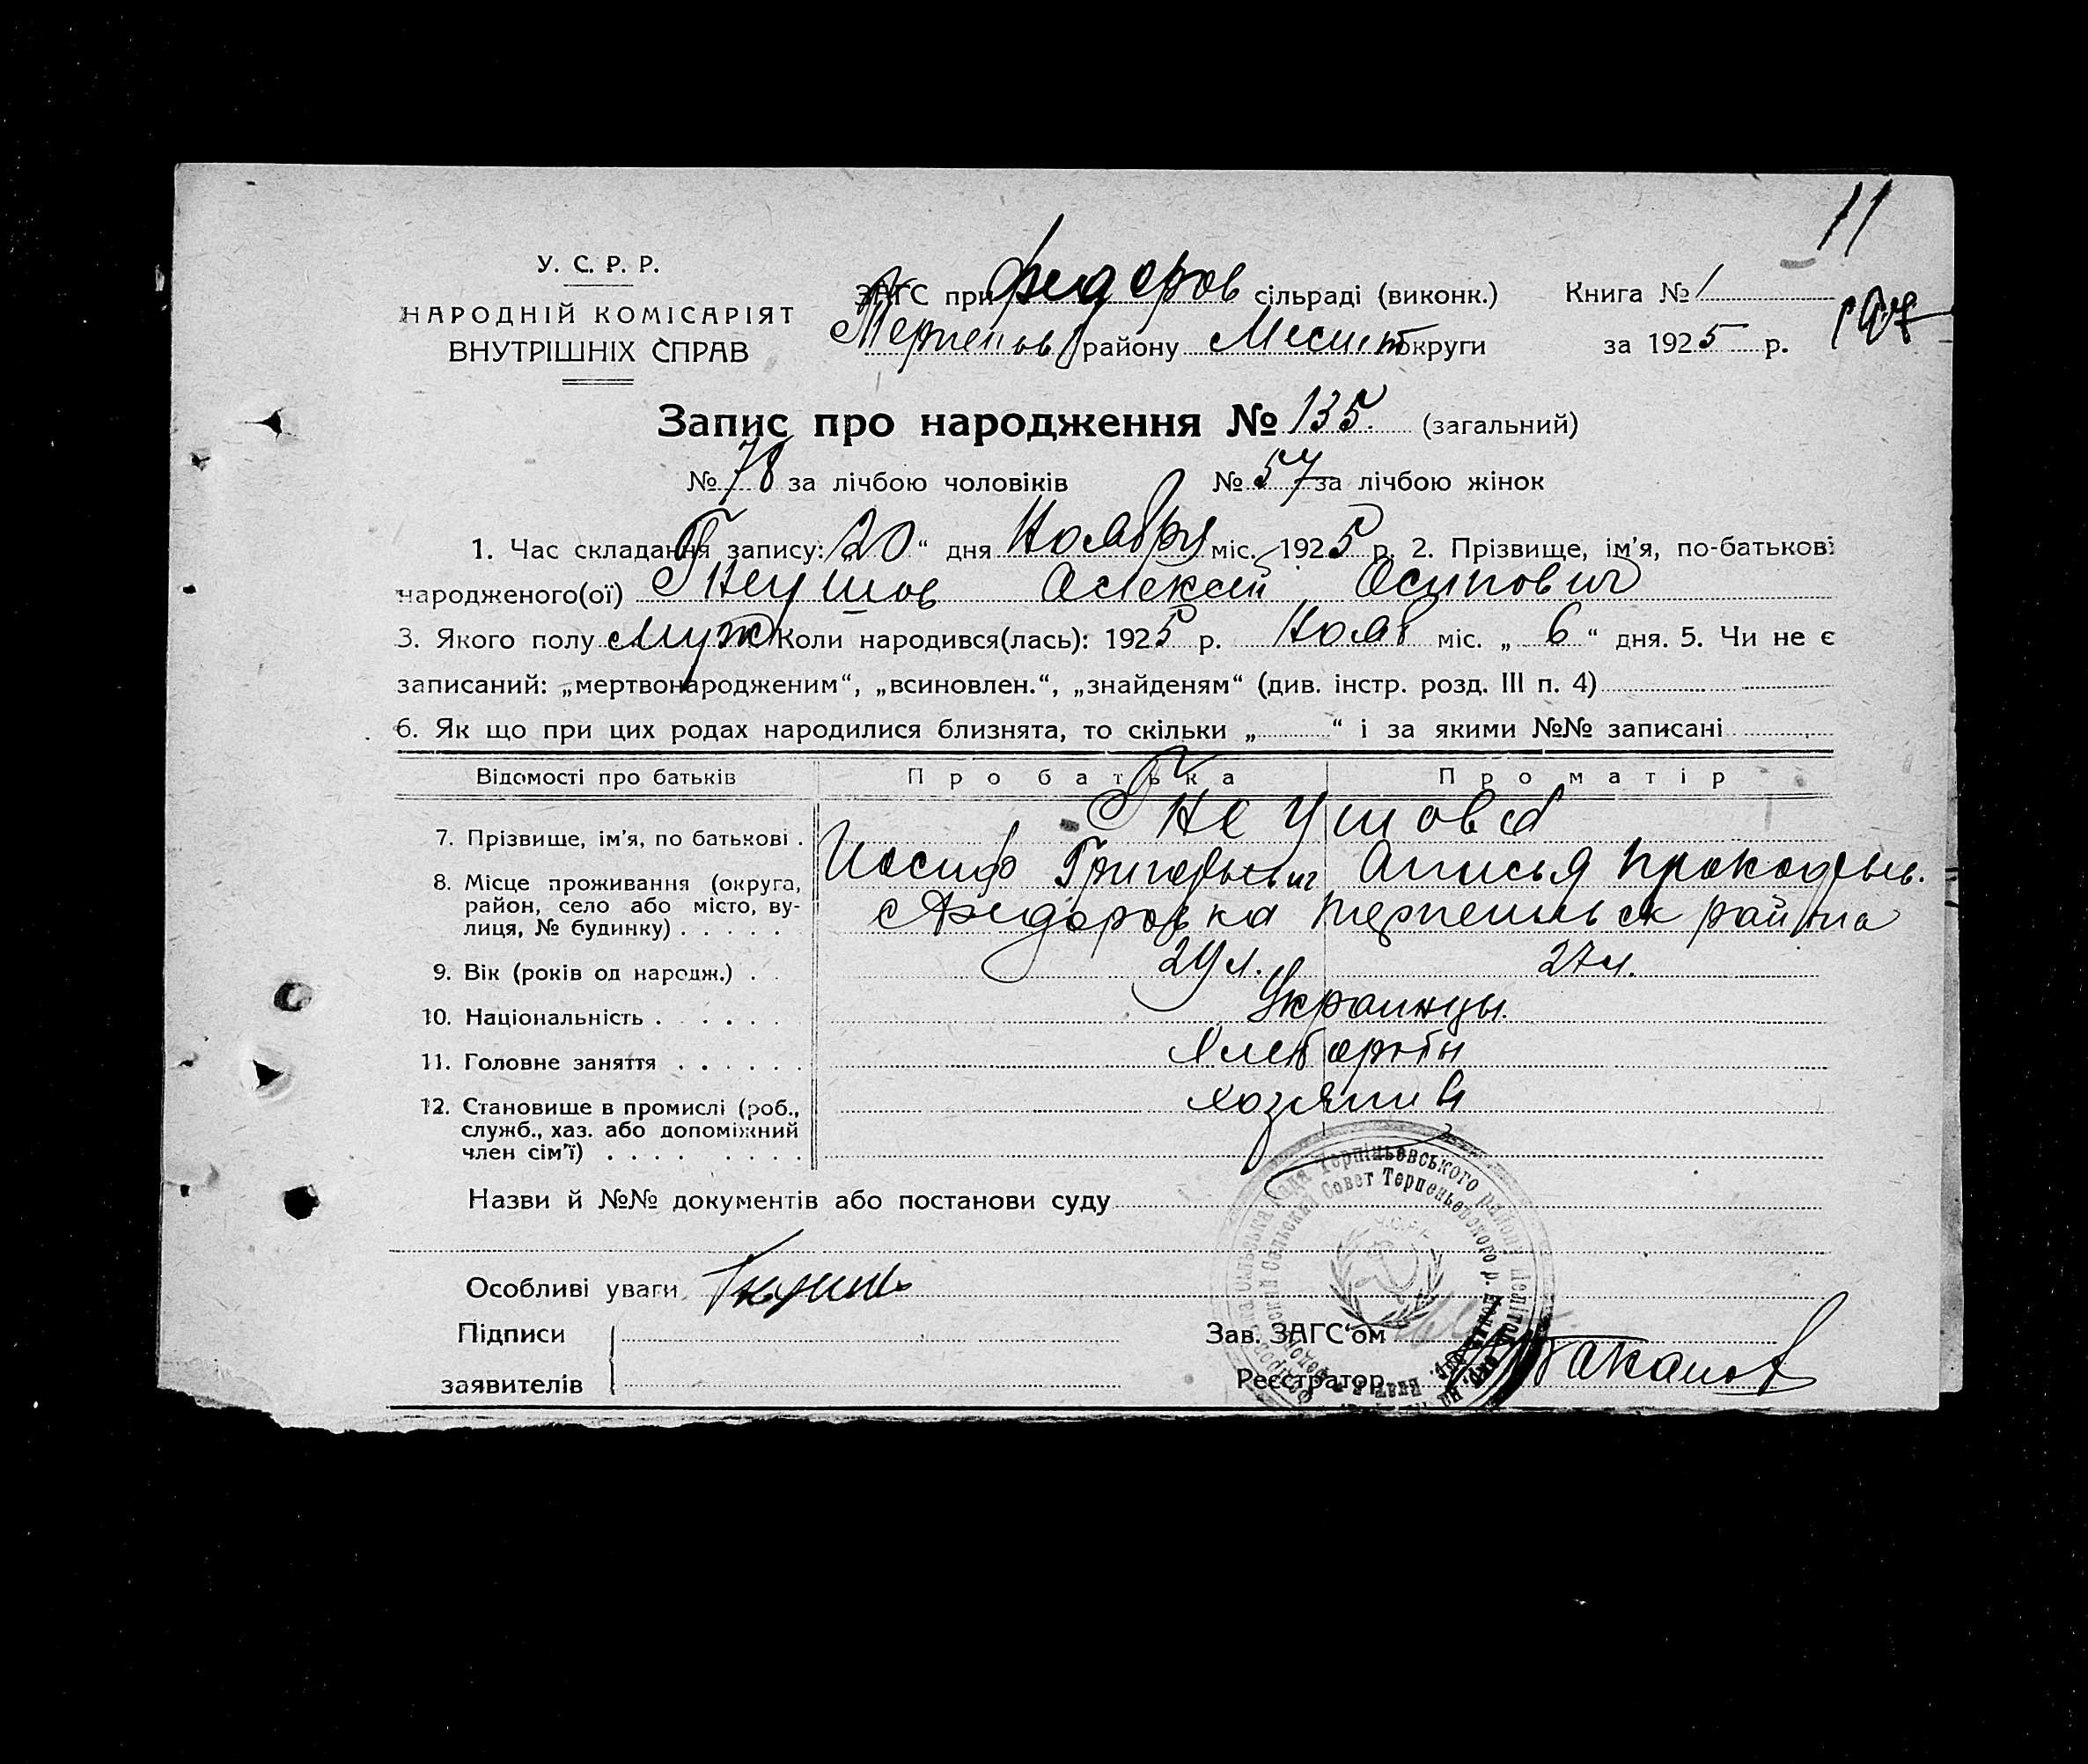 11
У. С. Р. Р.
НАРОДНІЙ КОМІСАРІЯТ
ВНУТРІШНІХ СПРАВ
ЗАГС при Федоров сільраді (виконк.) Книга № 1
Терпенов району Мелит округи за 1925 р.
Запис про народження № 135. (загальний)
№ 78 за лічбою чоловіків № 57 за лічбою жінок
1. Час складання запису: „20“ дня Ноября міс. 1925 р. 2. Прізвище, ім'я, по-батькові
народженого(ої) Гнеушов Алексей Осипович
3. Якого полу муж Коли народився(лась): 1925 р. Нояб міс. „ 6 “ дня. 5. Чи не є
записаний: „мертвонародженим“, „всиновлен.“, „знайденям“ (див. інстр. розд. III п. 4)
6. Як що при цих родах народилися близнята, то скільки „ “ і за якими №№ записані
Відомості про батьків Про батька Про матір
7. Прізвище, ім'я, по батькові . Гнеушовы
Иосиф Григорьевич Анисья Прокофьев.
8. Місце проживання (округа,
район, село або місто, ву-
лиця, № будинку) . . . . . с Федоровка Терпеньск района
9. Вік (років од народж.) . . 29 л. 27 л.
10. Національність . . . . . . Украинцы.
11. Головне заняття . . . . . . Хлебороты
12. Становище в промислі (роб.,
служб., хаз. або допоміжний
член сім'ї) . . . . . . . . хозяин
Назви й №№ документів або постанови суду
Особливі уваги
Підписи
заявителів
Зав. ЗАГС'ом
Реєстратор
Рада Терпіньєвського району Меліто
Сельский Совет Терпеньевского р.